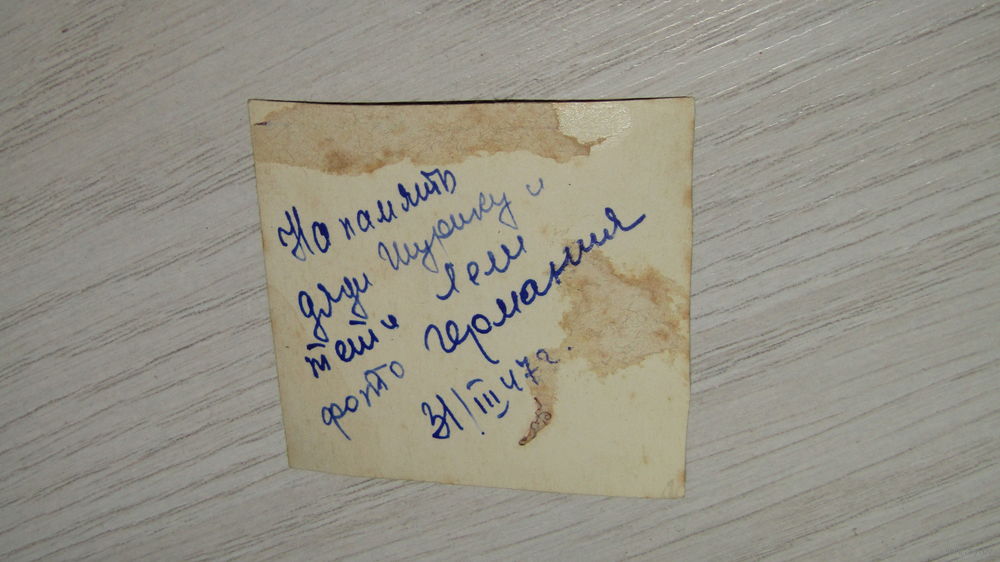 На память
дяди Шурику и
тети Лели
фото германия
31/III 47 г.